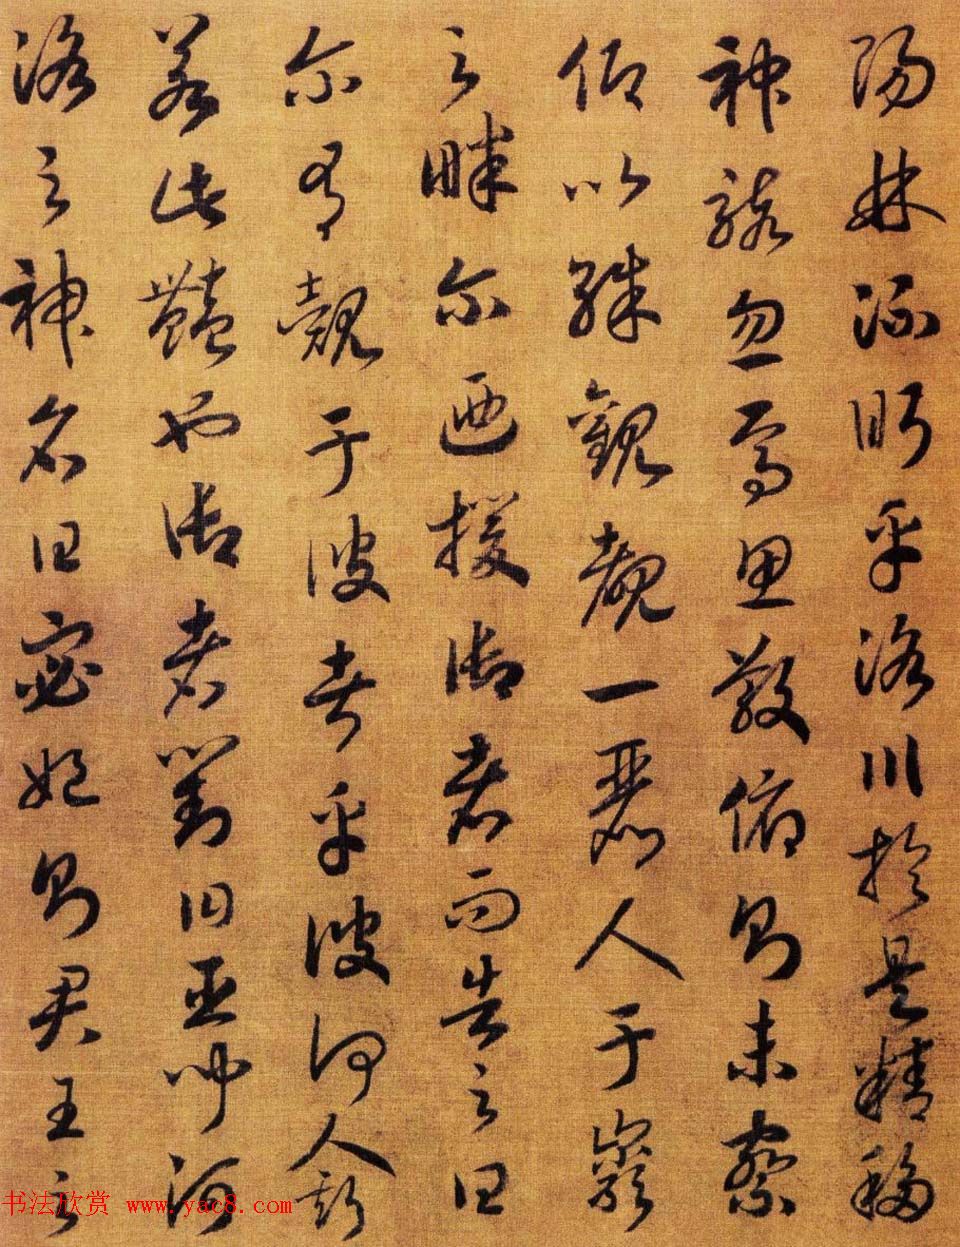 陽林流眄乎洛川於是精移
神駭忽焉思散俯則未察
仰以殊觀覩一麗人于巖
之畔尔迺援御者而告之曰
尔有觀于彼者乎彼何人斯
若此豔也御者對曰臣聞河
洛之神名曰宓妃則君王之
书法欣赏 www.yac8.com